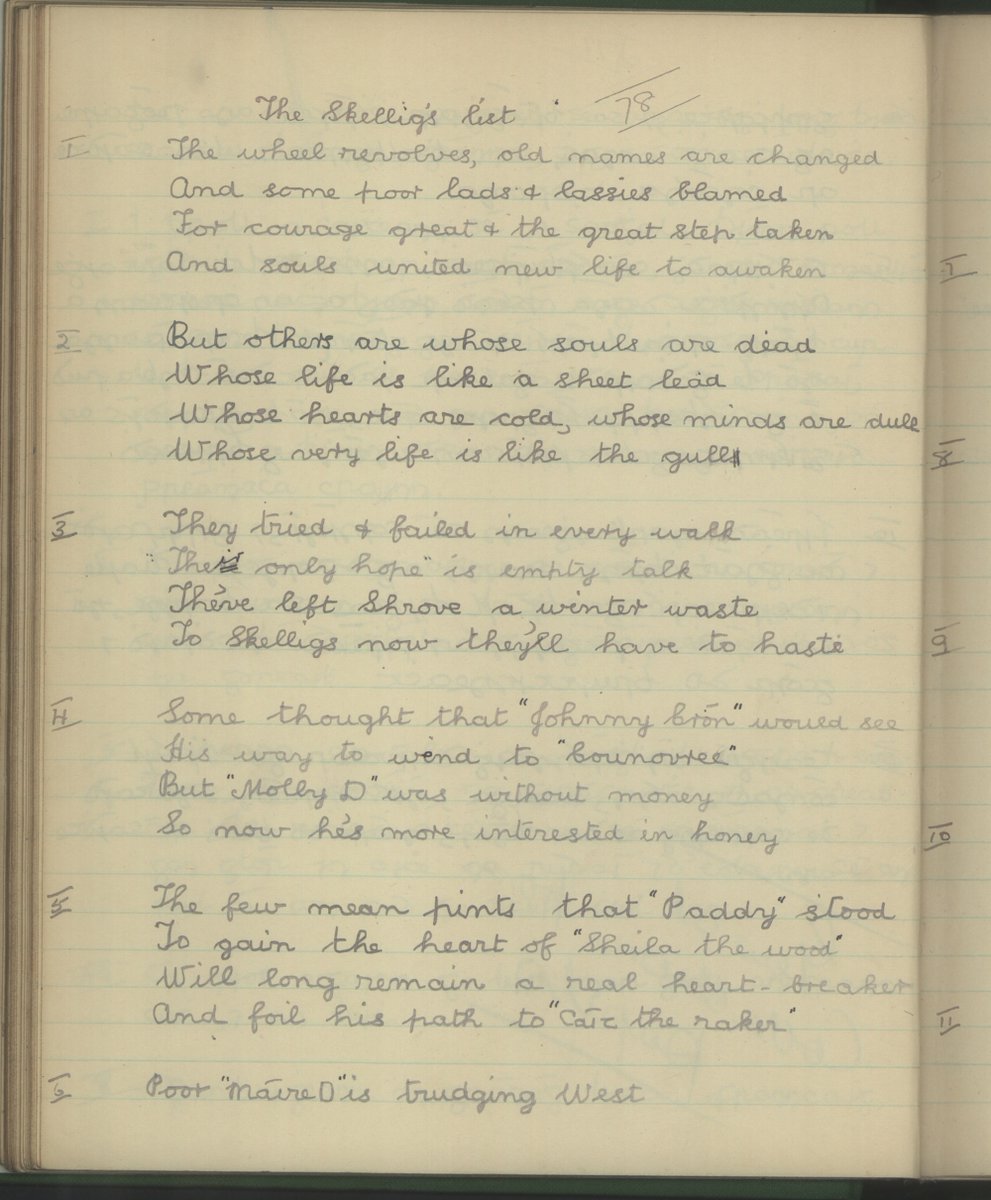 The Skellig's list 78
1 The wheel revolves, old names are changed
And some poor lads & lassies blamed
For courage great & the great step taken
And souls united new life to awaken
2 But others are whose souls are dead
Whose life is like a sheet lead
Whose hearts are cold, whose minds are dull
Whose very life is like the gull
3 They tried & failed in every walk
"Their only hope" is empty talk
Thev'e left Shrove a winter waste
To Skelligs now they'll have to haste
4 Some thought that "Johnny Crón" would see
His way to wend to "Counovree"
But "Molly D" was without money
So now he's more interested in honey
5 The few mean pints that "Paddy" stood
To gain the heart of "Sheila the wood"
Will long remain a real heart-breaker
And foil his path to "Cáit the raker"
6 Poor "Máire D" is trudging West
7
8
9
10
11